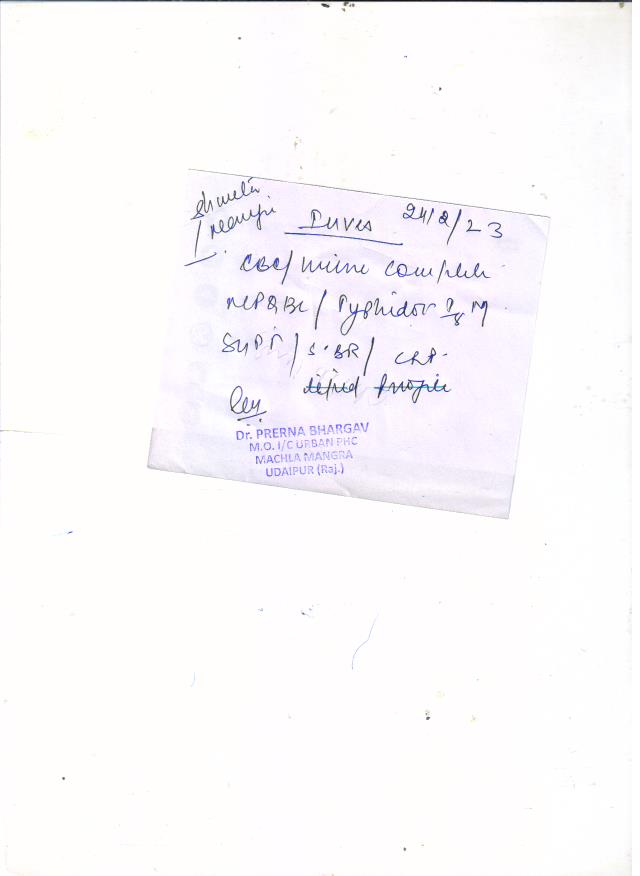 Shweta
24/2/23
CBC/ Urine Complete
/ Typhidot
SGPT / S. BR / CRP.
lipid Profile
Dr. PRERNA BHARGAV
M.O. I/C URBAN PHC
MACHLA MANGRA
UDAIPUR (Raj.)